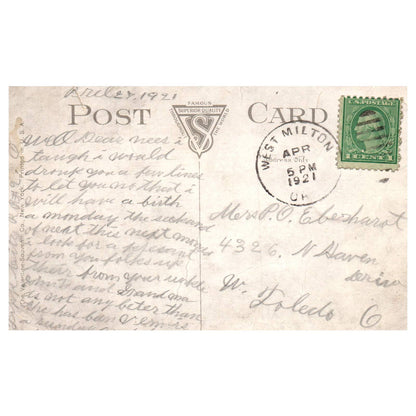 April 27, 1921
POST CARD
FAMOUS
SUPERIOR QUALITY
THE WORLD
S
Address Side
WEST MILTON
APR
5 PM
1921
OH
U.S. POSTAGE
CENTS
Well Dear nees i
taugh i would
drop you a few lines
to let you no that i
will have a birth
a monday the second
of next this next
i look for a present
from you folks up
their from your uncle
and Grandma
is not any beter than
she has ben
a
Mrs P. O. Eberhardt
4326 N Haven
W. Toledo O